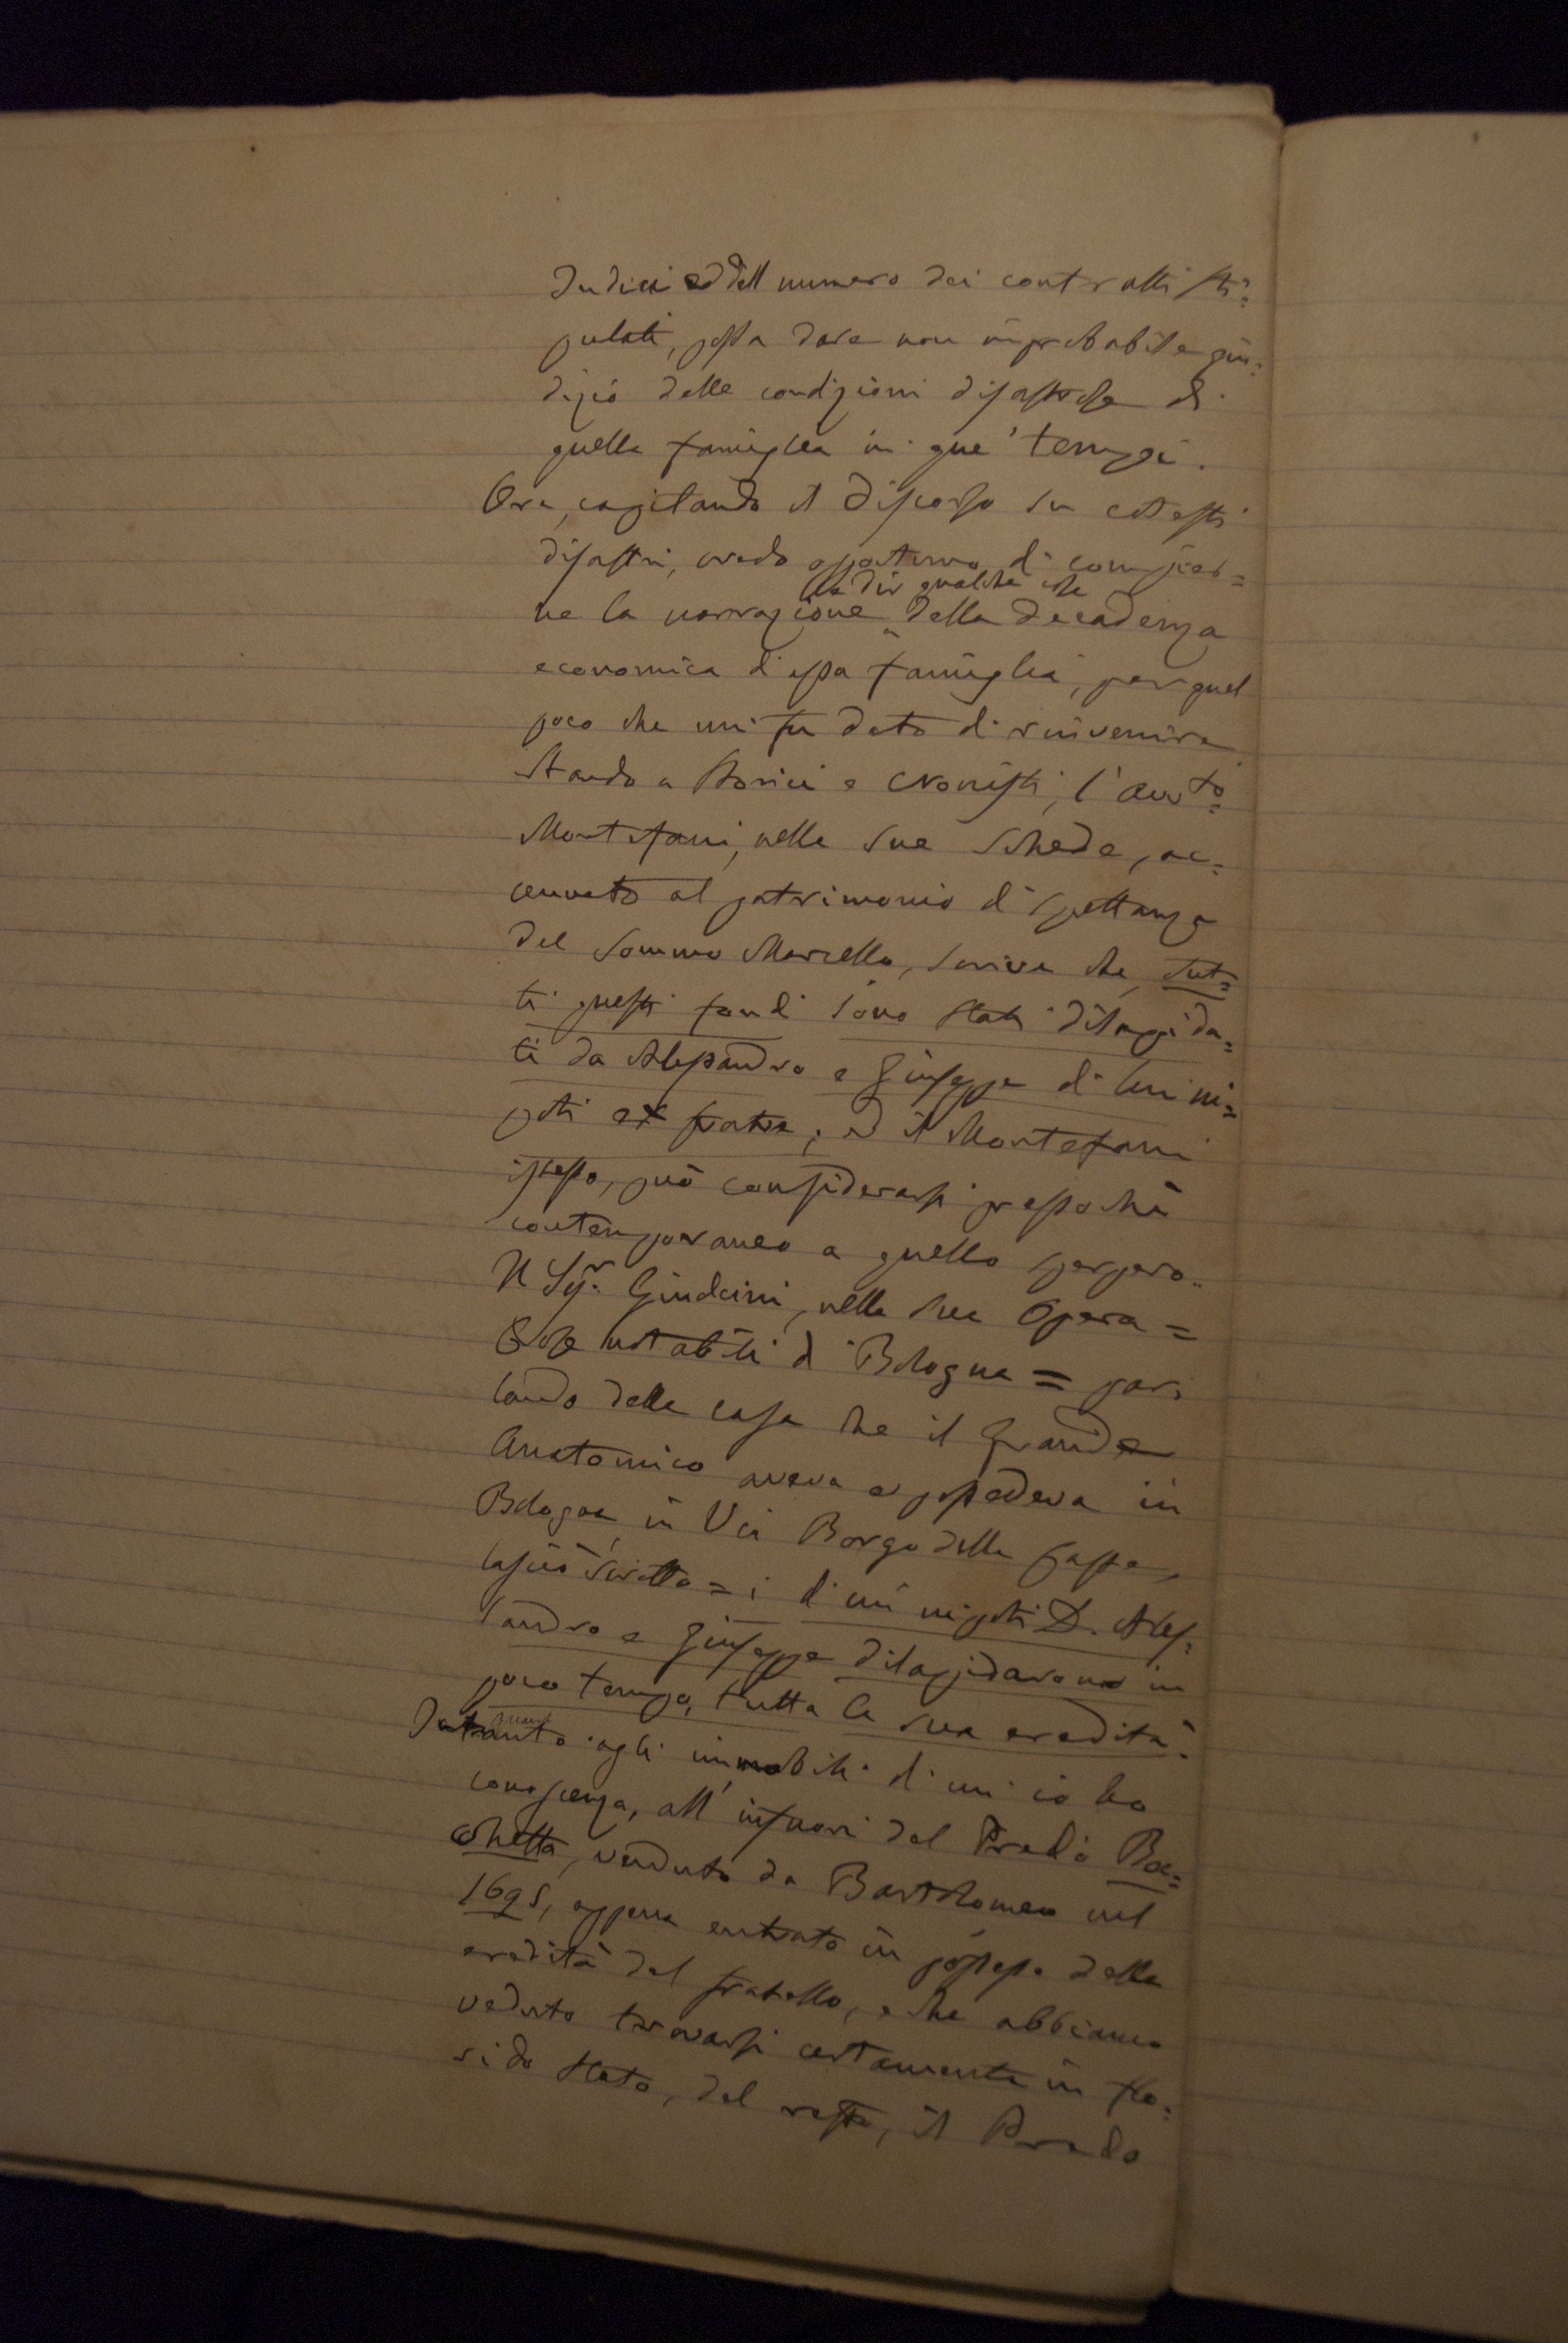 Indici ed dell numero dei contratti sti=
pulati, possa dare non improbabile giu=
dizio delle condizioni disastrose di
quella famiglia in que' tempi.
Ora, cogitando il discorso su cotesti
disastri, credo opportuno di compier=
a dir qualche che
ne la narrazione della decadenza
economica di essa famiglia, per quel
poco che mi fu dato di rinvenire
Stando a storici e cronisti, l'Aut.to
Montefani, nelle sue schede, ac=
cennato al patrimonio di spettanza
del sommo Marcello, scrive che, tut=
ti questi fondi sono stati dilapida=
ti da Alessandro e Giuseppe di lui ni=
poti ex fratre; ed il Montefani
istesso, può considerarsi pressochè
contemporaneo a quello sperpero.
Il Sig.r Giudicini, nella sua Opera =
Cose notabili di Bologna = par=
lando della casa che il Grande
Anatomico aveva e possedeva in
Bologna in Via Borgo delle Casse,
lasciò scritto = i di cui nipoti D. Ales=
sandro e Giuseppe dilapidarono in
poco tempo, tutta la sua eredità.
quant
Intranto agli immobili di cui io ho
conoscenza, all'infuori del Predio Boc=
chetta, venduto da Bartolomeo nel
1695, appena entrato in possesso della
eredità del fratello, e che abbiamo
veduto trovarsi certamente in flo=
rido stato, del resto, il Predio